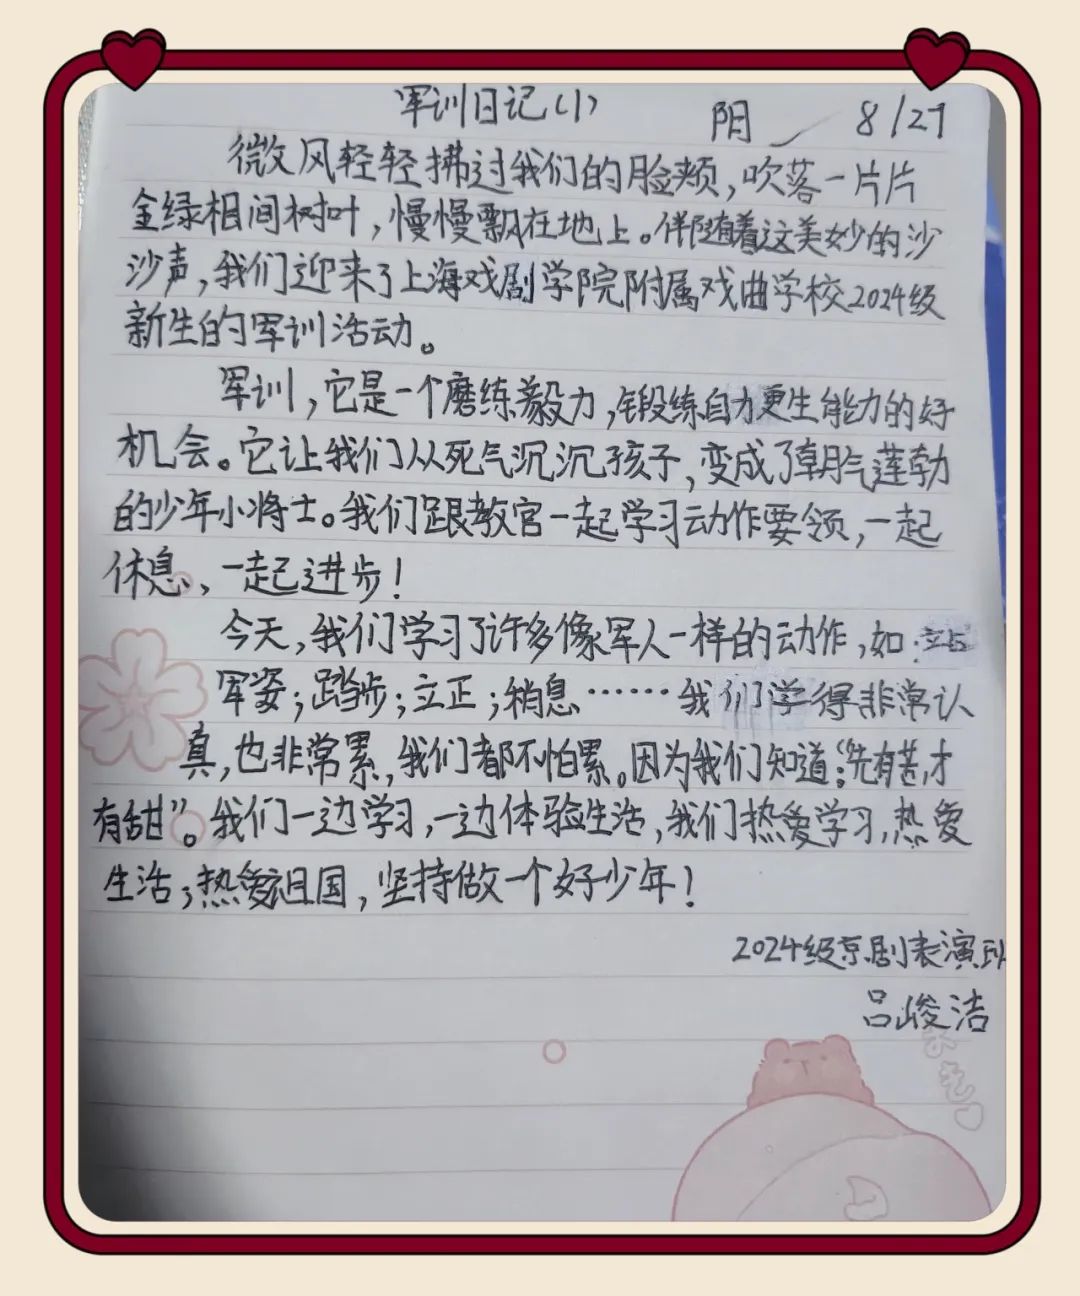 军训日记(1) 阴 8/27
微风轻轻拂过我们的脸颊,吹落一片片
金绿相间树叶,慢慢飘在地上。伴随着这美妙的沙
沙声,我们迎来了上海戏剧学院附属戏曲学校2024级
新生的军训活动。
军训,它是一个磨练毅力,锻练自力更生能力的好
机会。它让我们从死气沉沉孩子,变成了朝气蓬勃
的少年小将士。我们跟教官一起学习动作要领,一起
休息、一起进步!
今天,我们学习了许多像军人一样的动作,如:立占
军姿;踏步;立正;稍息……我们学得非常认
真,也非常累,我们都不怕累。因为我们知道:“先有苦,才
有甜”。我们一边学习,一边体验生活,我们热爱学习,热爱
生活;热爱祖国,坚持做一个好少年!
2024级京剧表演班
吕峻洁